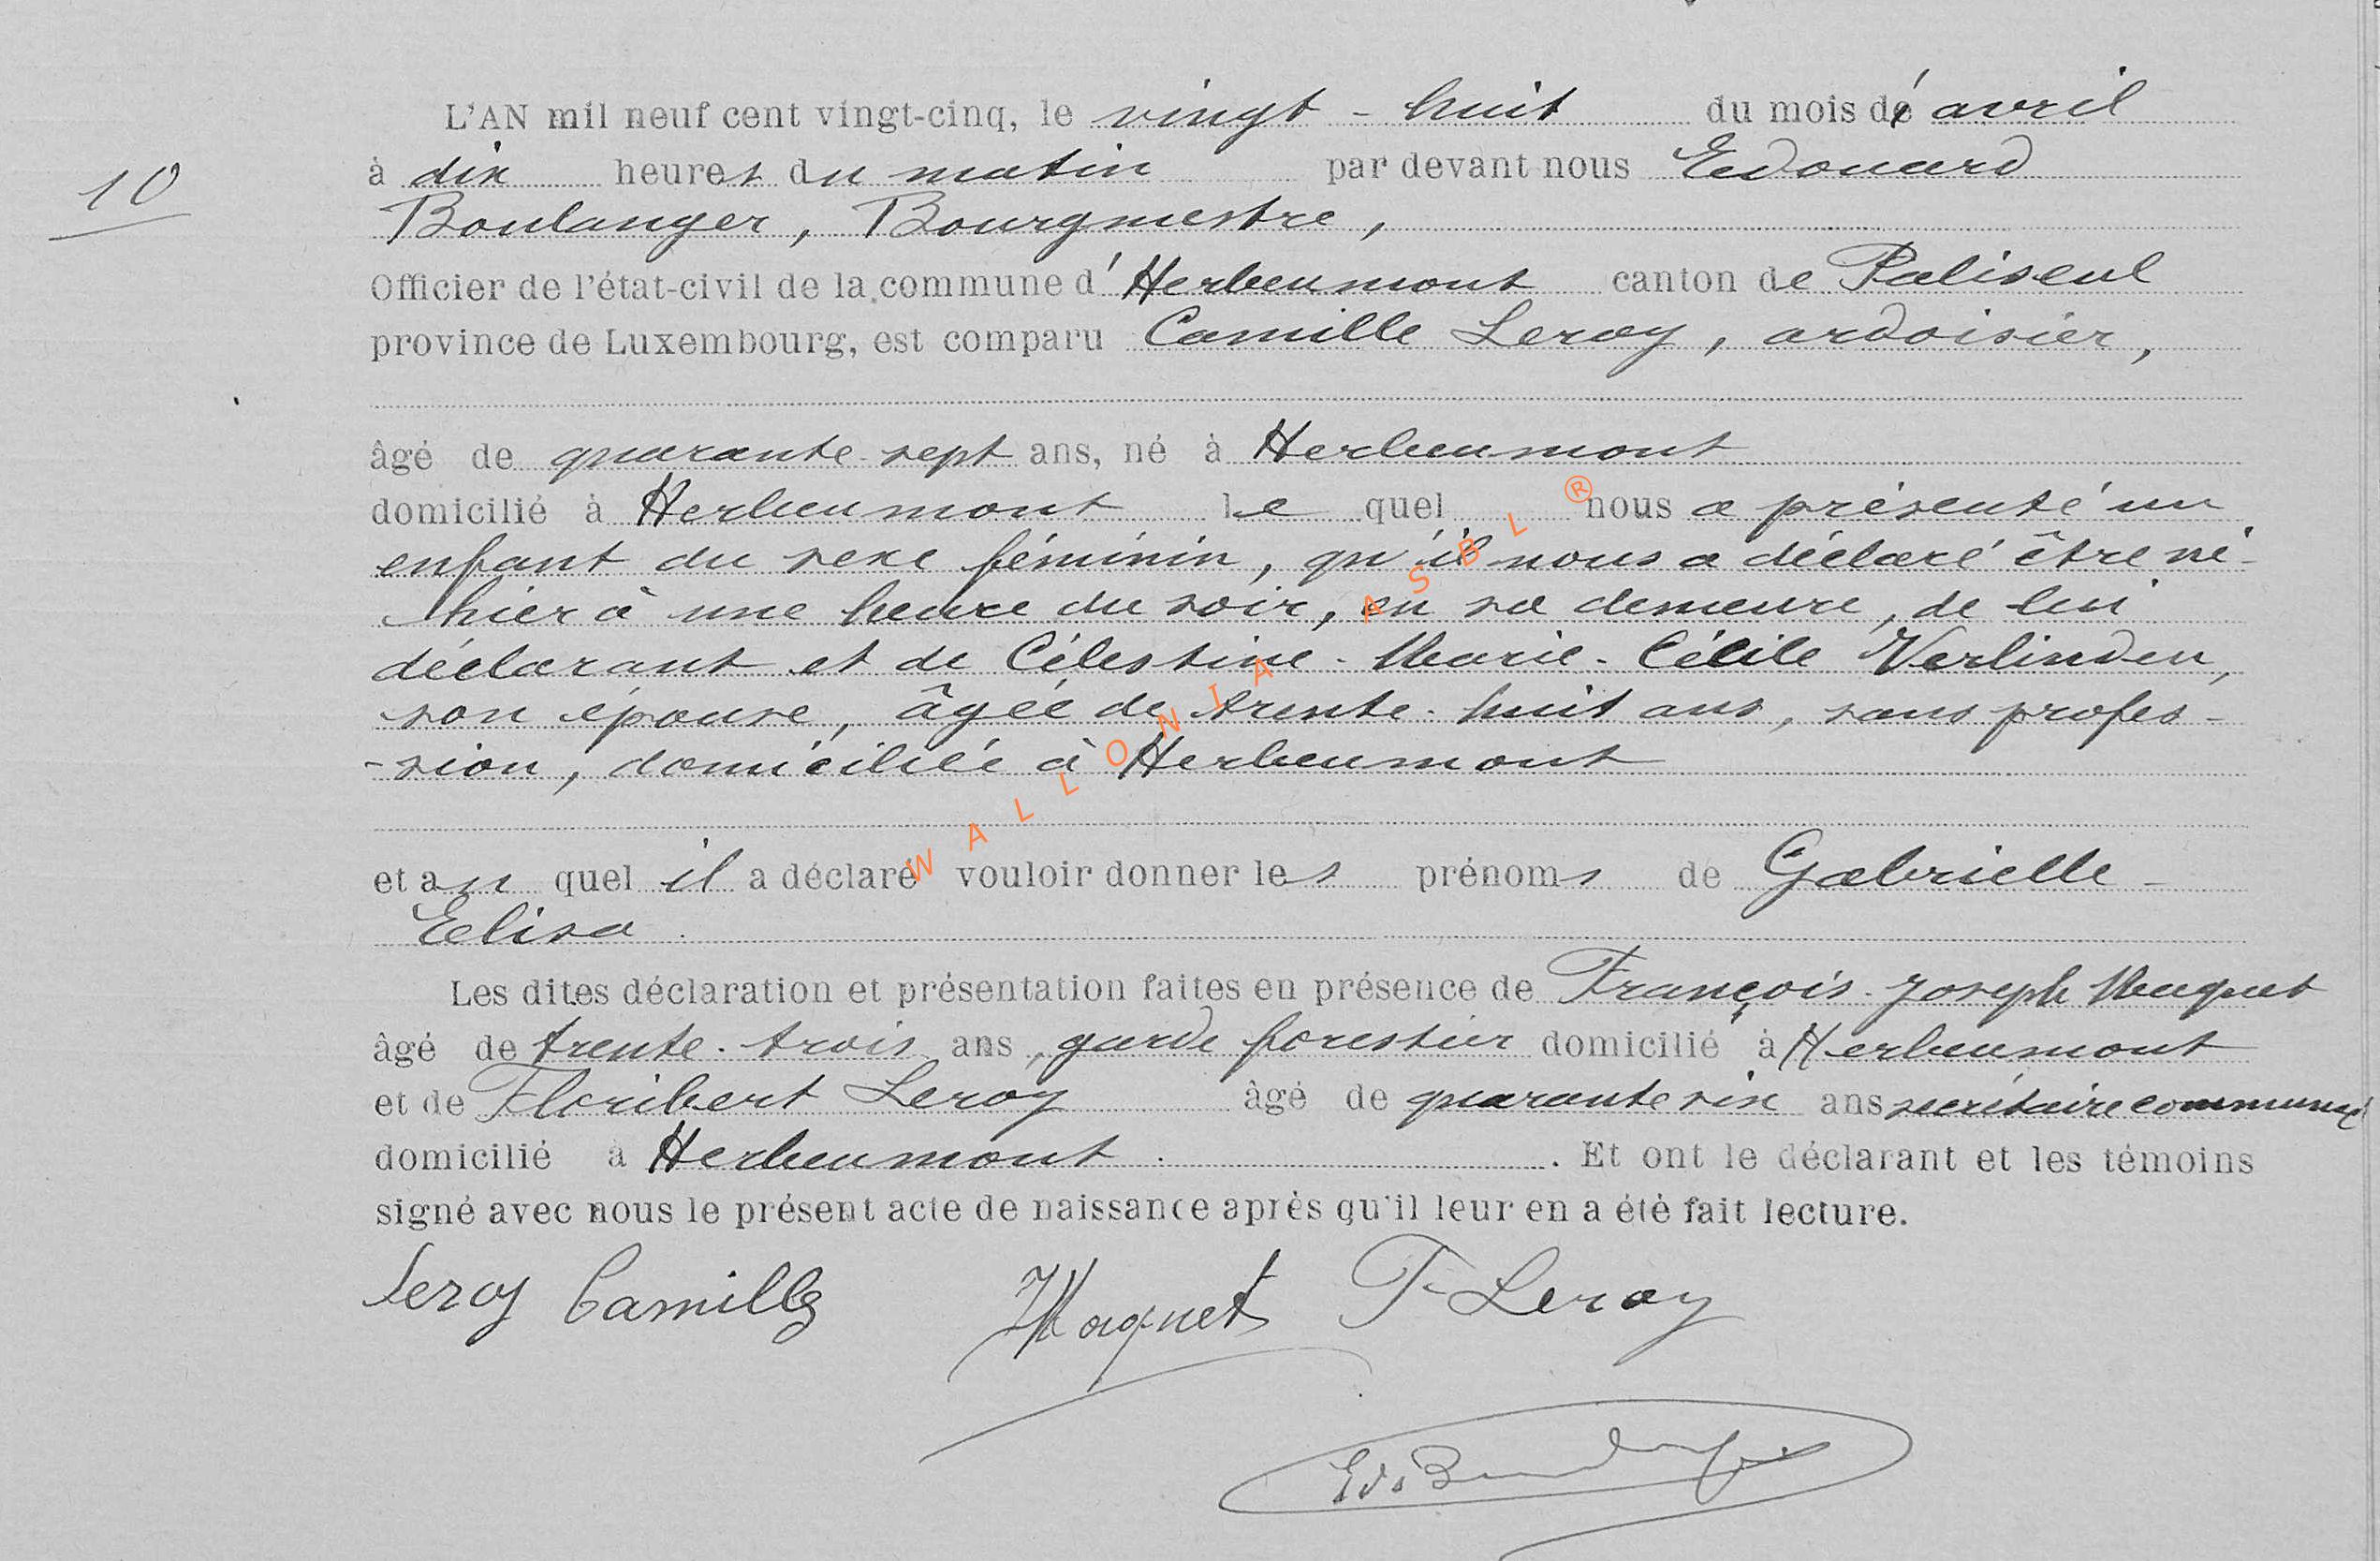 L'AN mil neuf cent vingt-cinq, le vingt-huit du mois d'avril
10
à dix heures du matin par devant nous Edouard
Boulanger, Bourgmestre,
Officier de l'état-civil de la commune d'Herbeumont canton de Paliseul
province de Luxembourg, est comparu Camille Leroy, ardoisier,
âgé de quarante-sept ans, né à Herbeumont
domicilié à Herbeumont le quel nous a présenté un
enfant du sexe féminin, qu'il nous a déclaré être né
hier à une heure du soir, en sa demeure, de lui
déclarant et de Célestine-Marie-Cécile Verlinden,
son épouse, âgée de trente-huit ans, sans profes-
-sion, domiciliée à Herbeumont
et au quel il a déclaré vouloir donner les prénoms de Gabrielle-
Elisa.
Les dites déclaration et présentation faites en présence de François-Joseph Maquet
âgé de trente-trois ans, garde forestier domicilié à Herbeumont
et de Floribert Leroy âgé de quarante six ans secrétaire communal
domicilié à Herbeumont. Et ont le déclarant et les témoins
signé avec nous le présent acte de naissance après qu'il leur en a été fait lecture.
Leroy Camille Maquet F Leroy
Ed. Boulanger
WALLONIA ASBL ®